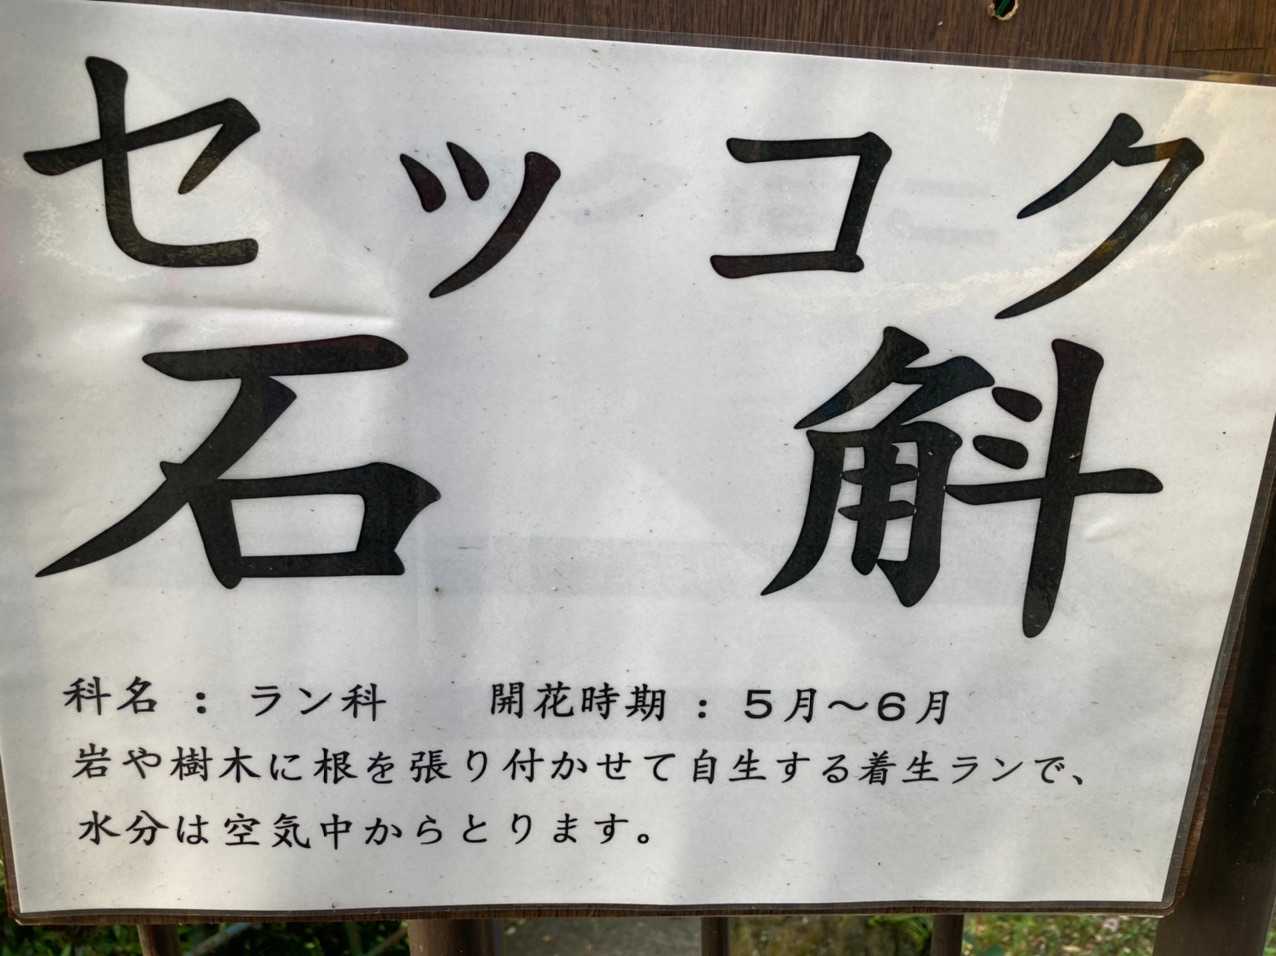 セッコク
石斛
科名：ラン科　開花時期：５月〜６月
岩や樹木に根を張り付かせて自生する着生ランで、
水分は空気中からとります。